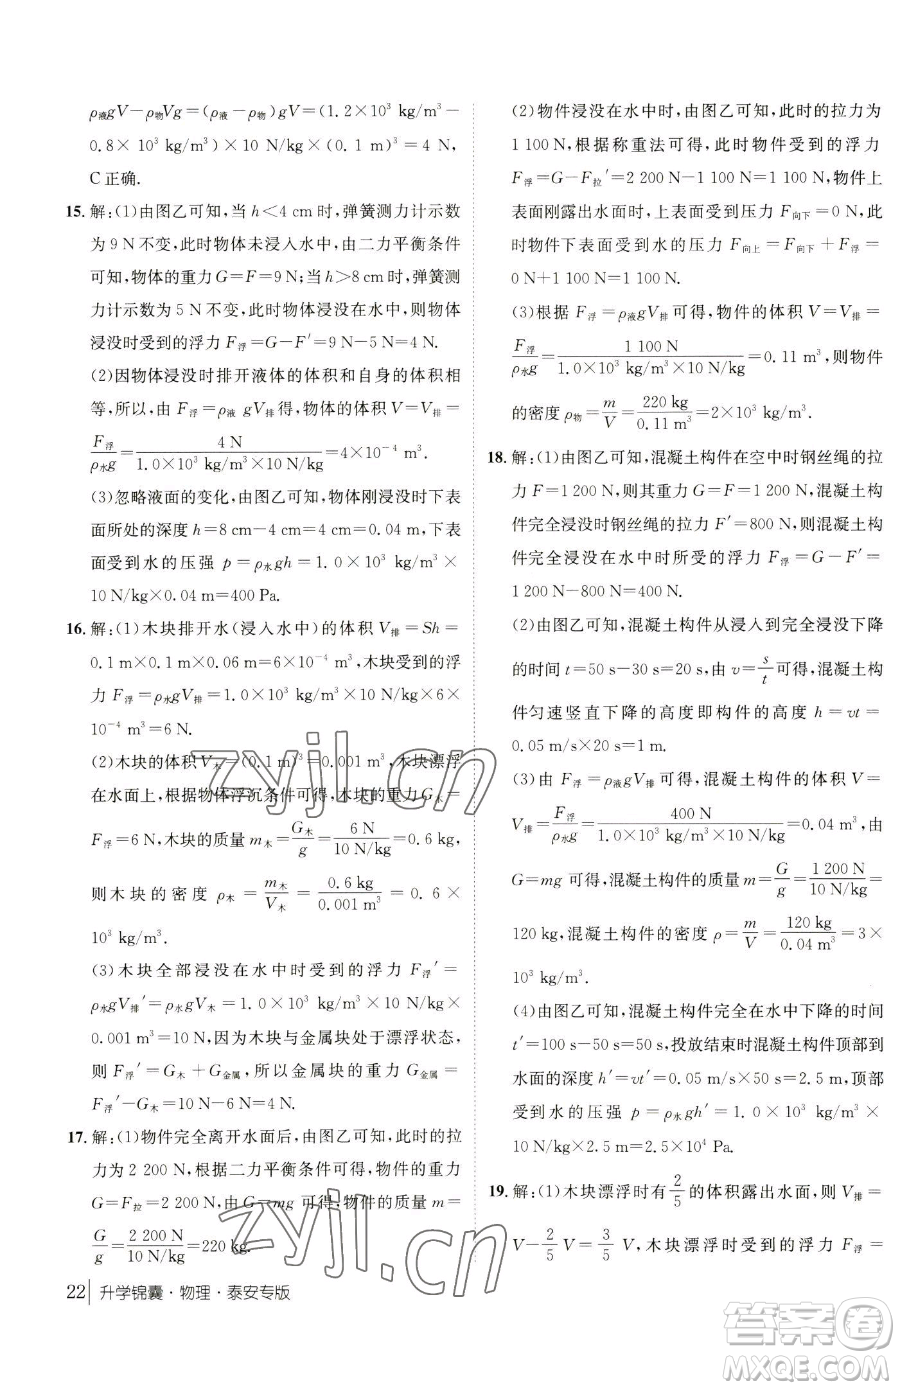 ρ液gV−ρ物Vg=(ρ液−ρ物)gV=(1.2×10³ kg/m³−
0.8×10³ kg/m³)×10 N/kg×(0.1 m)³=4 N,
C正确.
15. 解:(1)由图乙可知,当h<4 cm时,弹簧测力计示数
为9 N不变,此时物体未浸入水中,由二力平衡条件
可知,物体的重力G=F=9 N;当h>8 cm时,弹簧测
力计示数为5 N不变,此时物体浸没在水中,则物体
浸没时受到的浮力F浮=G−F′=9 N−5 N=4 N.
(2)因物体浸没时排开液体的体积和自身的体积相
等,所以,由F浮=ρ液 gV排得,物体的体积V=V排=
F浮/ρ水g=4 N/(1.0×10³ kg/m³×10 N/kg)=4×10⁻⁴ m³.
(3)忽略液面的变化,由图乙可知,物体刚浸没时下表
面所处的深度h=8 cm−4 cm=4 cm=0.04 m,下表
面受到水的压强p=ρ水gh=1.0×10³ kg/m³×
10 N/kg×0.04 m=400 Pa.
16. 解:(1)木块排开水(浸入水中)的体积V排=Sh=
0.1 m×0.1 m×0.06 m=6×10⁻⁴ m³,木块受到的浮
力F浮=ρ水gV排=1.0×10³ kg/m³×10 N/kg×6×
10⁻⁴ m³=6 N.
(2)木块的体积V木=(0.1 m)³=0.001 m³,木块漂浮
在水面上,根据物体浮沉条件可得,木块的重力G木=
F浮=6 N,木块的质量m木=G木/g=6 N/(10 N/kg)=0.6 kg,
则木块的密度ρ木=m木/V木=0.6 kg/0.001 m³=0.6×
10³ kg/m³.
(3)木块全部浸没在水中时受到的浮力F浮′=
ρ水gV排′=ρ水gV木=1.0×10³ kg/m³×10 N/kg×
0.001 m³=10 N,因为木块与金属块处于漂浮状态,
所以F浮′=G木+G金属,所以金属块的重力G金属=
F浮′−G木=10 N−6 N=4 N.
17. 解:(1)物件完全离开水面后,由图乙可知,此时的拉
力为2 200 N,根据二力平衡条件可得,物件的重力
G=F拉=2 200 N,由G=mg可得,物件的质量m=
G/g=2 200 N/(10 N/kg)=220 kg.
22 升学锦囊·物理·泰安专版
(2)物件浸没在水中时,由图乙可知,此时的拉力为
1 100 N,根据称重法可得,此时物件受到的浮力
F浮=G−F拉′=2 200 N−1 100 N=1 100 N,物件上
表面刚露出水面时,上表面受到的压力F向下=0 N,
此时物件下表面的压力F向上=F向下+F浮=
0 N+1 100 N=1 100 N.
(3)根据F浮=ρ液gV排可得,物件的体积V=V排=
F浮/ρ水g=1 100 N/(1.0×10³ kg/m³×10 N/kg)=0.11 m³,则物件
的密度ρ物=m/V=220 kg/0.11 m³=2×10³ kg/m³.
18. 解:(1)由图乙可知,混凝土构件在空中时钢丝绳的拉
力F=1 200 N,则构件的重力G=F=1 200 N,混凝土构
件完全浸没时钢丝绳的拉力F′=800 N,则混凝土构
件完全浸没在水中时所受的浮力F浮=G−F′=
1 200 N−800 N=400 N.
(2)由图乙可知,混凝土构件从浸入到完全浸没下降
的时间t=50 s−30 s=20 s,由v=s/t可得,混凝土构
件匀速竖直下降的高度即构件的高度h=vt=
0.05 m/s×20 s=1 m.
(3)由F浮=ρ液gV排可得,混凝土构件的体积V=
V排=F浮/ρ水g=400 N/(1.0×10³ kg/m³×10 N/kg)=0.04 m³,由
G=mg可得,混凝土构件的质量m=G/g=1 200 N/(10 N/kg)=
120 kg,混凝土构件的密度ρ=m/V=120 kg/0.04 m³=3×
10³ kg/m³.
(4)由图乙可知,混凝土构件完全在水中下降的时间
t′=100 s−50 s=50 s,投放结束时混凝土构件顶部到
水面的深度h′=vt′=0.05 m/s×50 s=2.5 m,顶部
受到水的压强p=ρ水gh′=1.0×10³ kg/m³×10
N/kg×2.5 m=2.5×10⁴ Pa.
19. 解:(1)木块漂浮时有2/5的体积露出水面,则V排=
V−2/5V=3/5V,木块漂浮时受到的浮力F浮=
zyjl.cn
zyjl.cn
答案圈
MXQE.COM